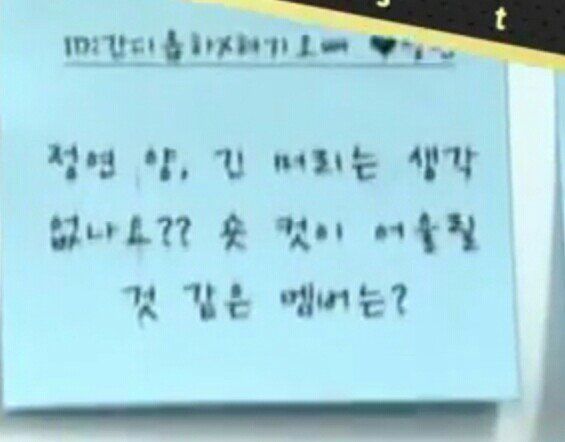 t
정연 양, 긴 머리는 생각
없나요?? 숏 컷이 어울릴
것 같은 멤버는?